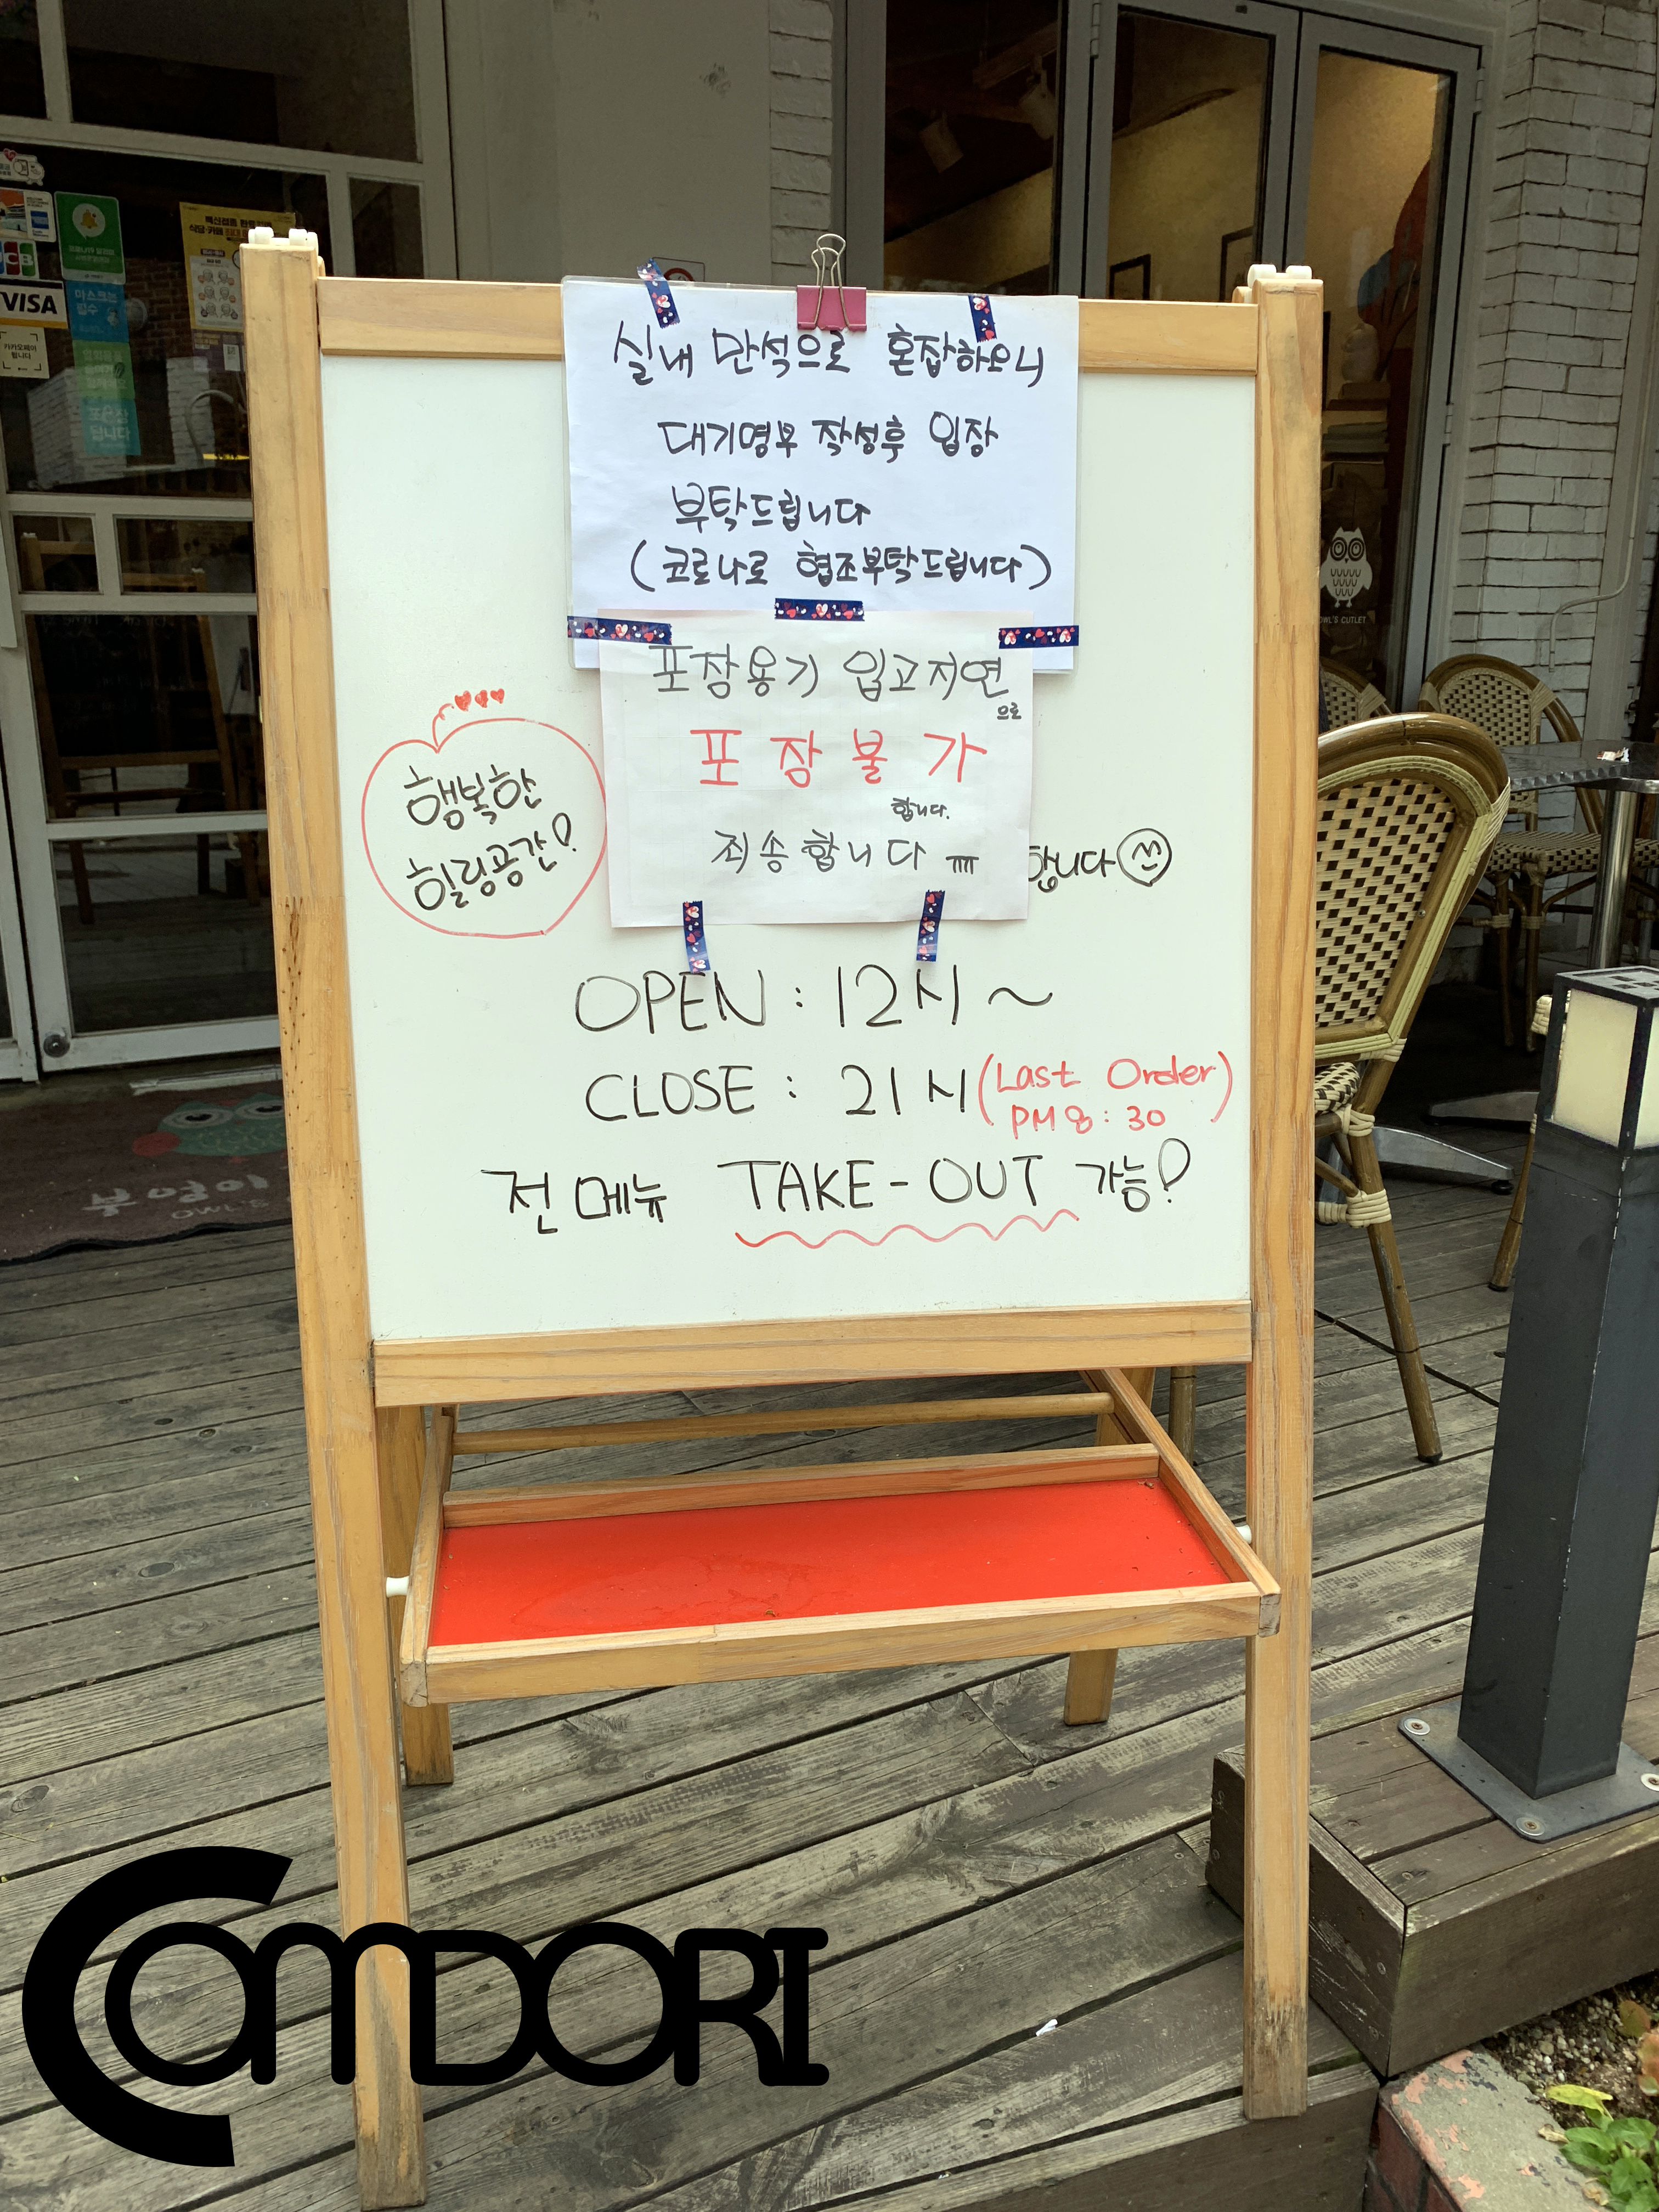 실내 만석으로 혼잡하오니
대기명부 작성후 입장
부탁드립니다
(코로나로 협조부탁드립니다)
포장용기 입고지연
으로
포장불가
합니다.
죄송합니다 ㅠㅠ
행복한
힐링공간!
합니다
OPEN : 12시 ~
CLOSE : 21시 (Last Order
PM 8 : 30)
전메뉴 TAKE-OUT 가능!
VISA
OWL'S CUTLET
부엉이
OWL'S
COMDORI